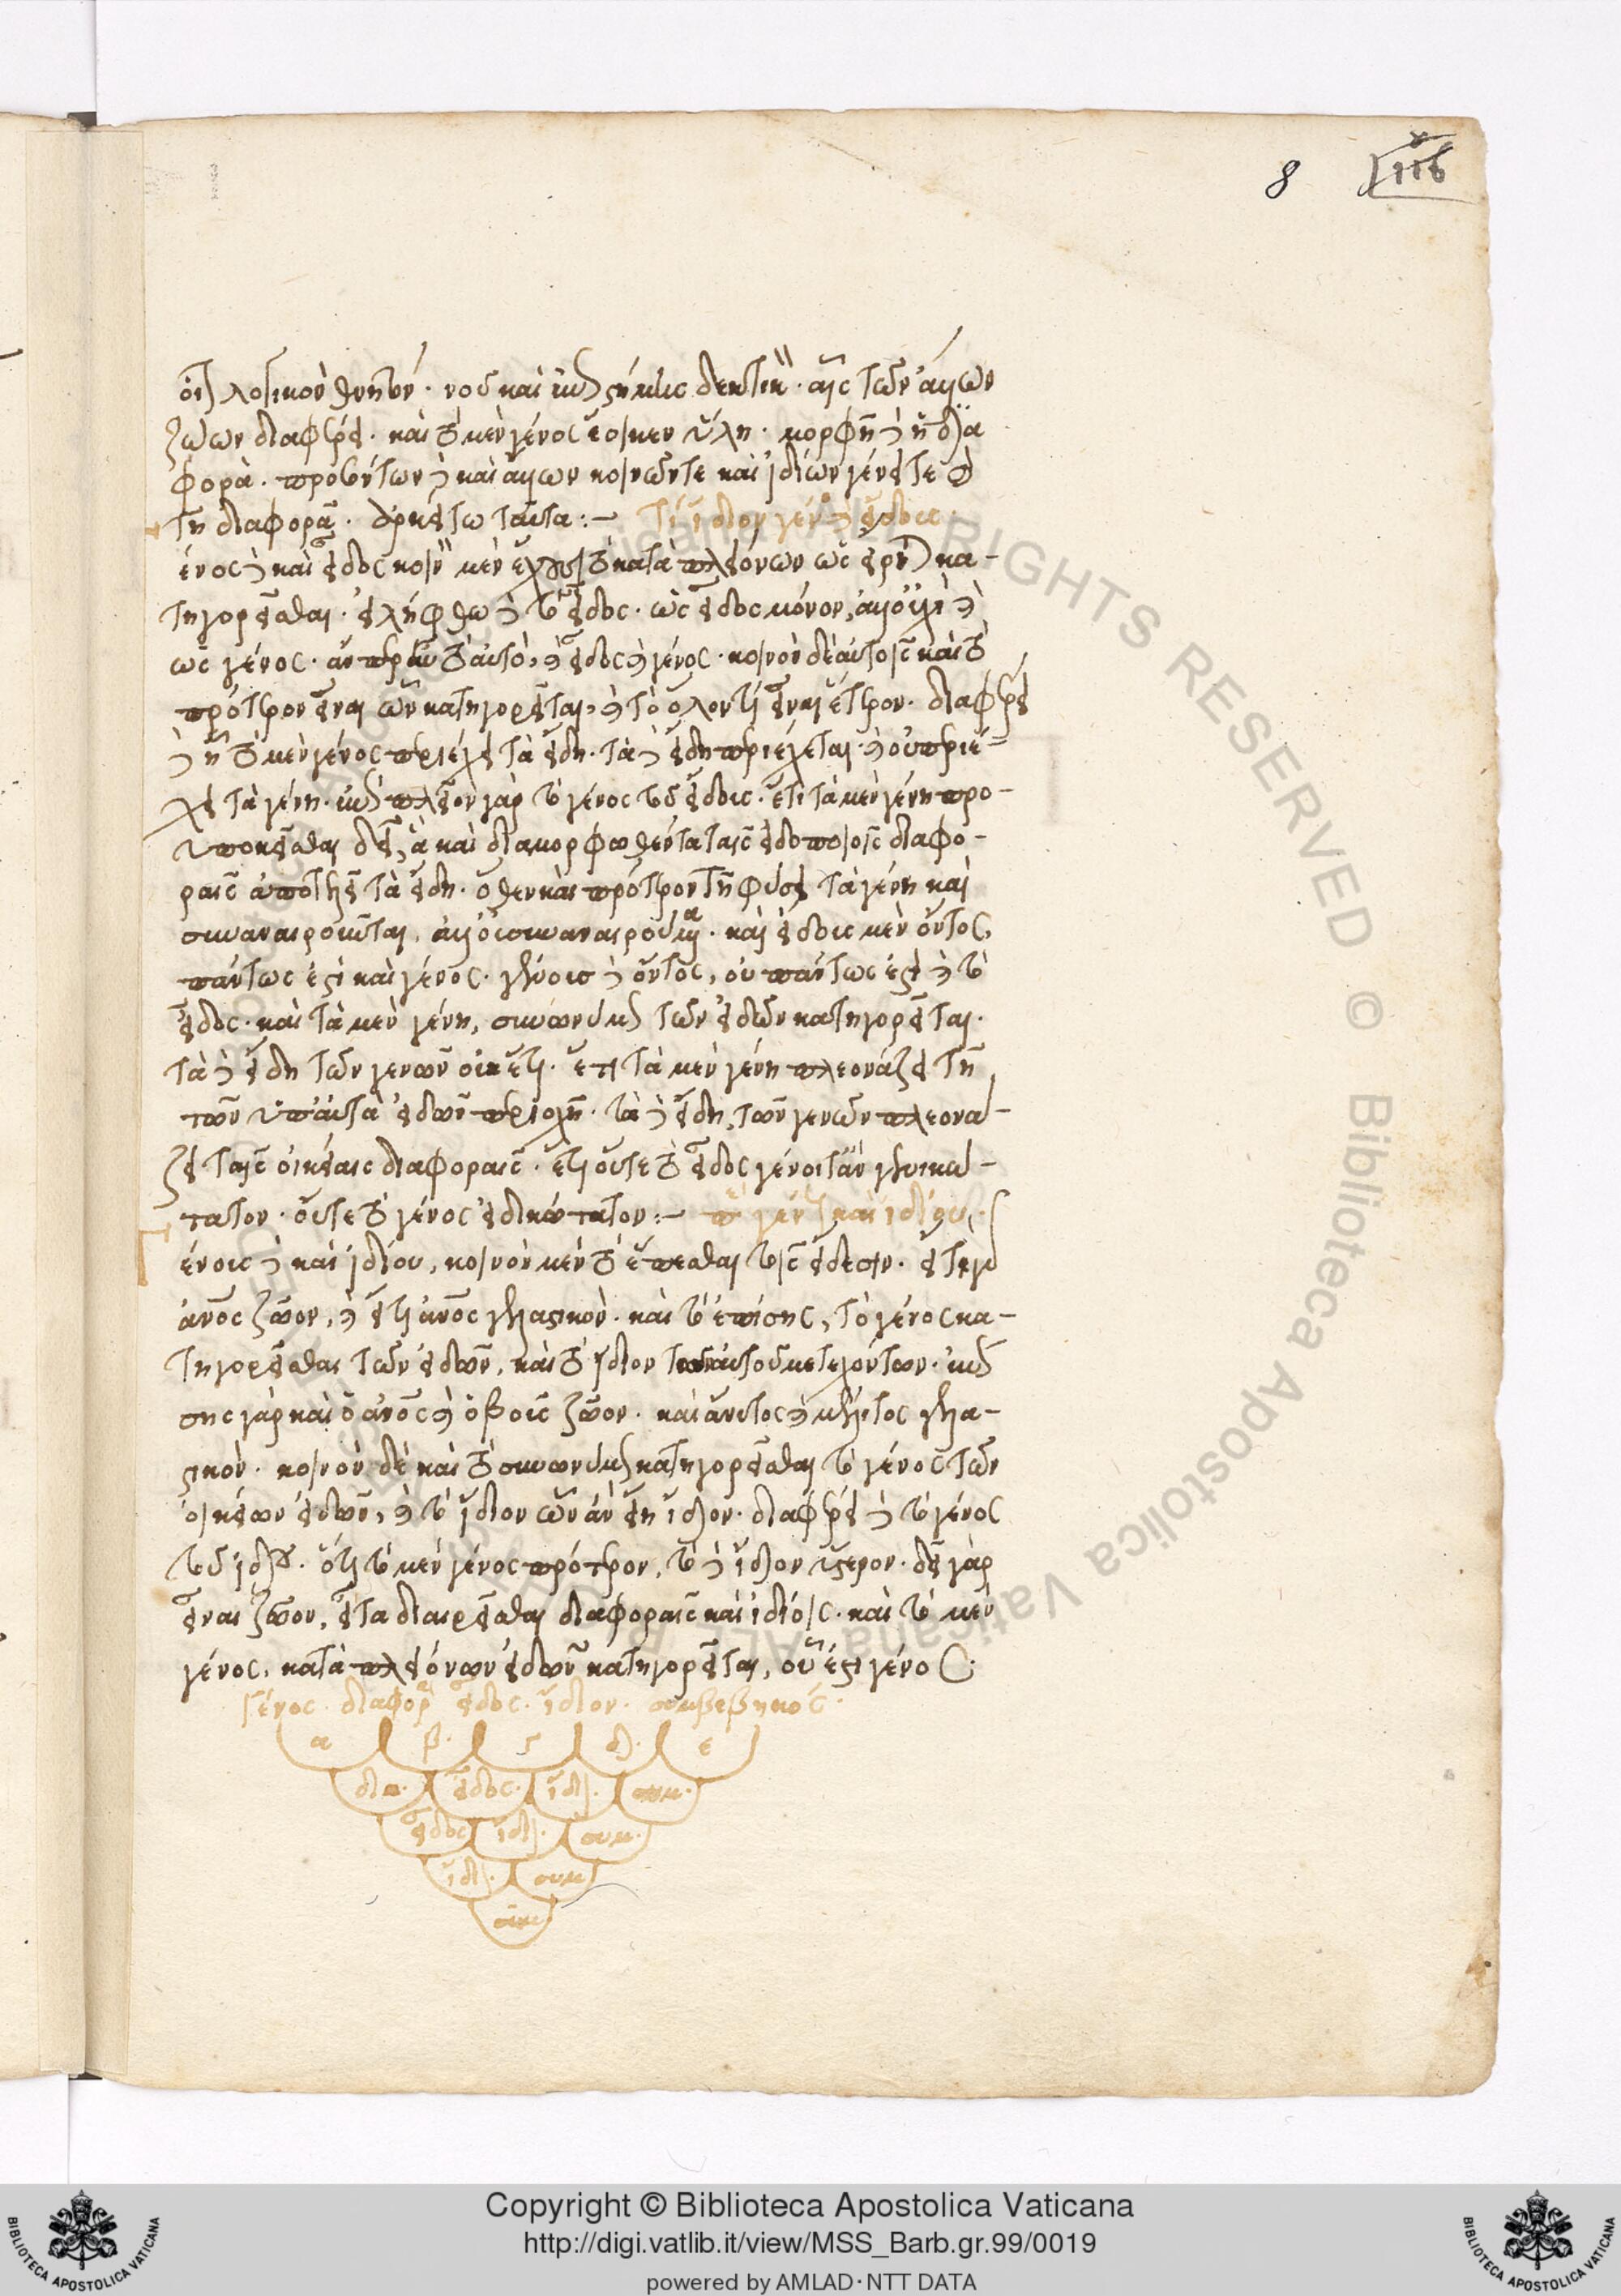 8
116
ζώων διαφέρει. καὶ τὸ μὲν γένος ἔοικεν ὕλη. μορφῆ δὲ ἡ δια
φορά. προσόντων δὲ καὶ ἄλλων κοινῶν τε καὶ ἰδίων γένει τε καὶ
τῆ διαφορᾶ. ἀρκείτω ταῦτα :~
ένος δὲ καὶ εἶδος κοινὸν μὲν ἔχουσι τὸ κατὰ πλειόνων ὡς εἴρηται κα-
τηγορεῖσθαι. εἰλήφθω δὲ τὸ εἶδος. ὡς εἶδος μόνον, ἀλλ' οὐχὶ καὶ
ὡς γένος. ἄνπερ ἦν τὸ αὐτὸ, καὶ εἶδος καὶ γένος. κοινὸν δὲ αὐτοῖς καὶ τὸ
πρότερον εἶναι ὧν κατηγορεῖται, καὶ τὸ ὅλον τι εἶναι ἑκάτερον. διαφέρει
δὲ ἧ τὸ μὲν γένος περιέχει τὰ εἴδη. τὰ δὲ εἴδη περιέχεται. καὶ οὐ περιέ-
χει τὰ γένη. ἐπὶ πλεῖον γὰρ τὸ γένος τοῦ εἴδους. ἔτι τὰ μὲν γένη προ-
υποκεῖσθαι δεῖ, ἃ καὶ διαμορφωθέντα ταῖς εἰδοποιοῖς διαφο-
ραῖς ἀποτελεῖ τὰ εἴδη. ὅθεν καὶ πρότερον τῆ φύσει τὰ γένη καὶ
συναναιροῦνται, ἀλλ' οὐ συναναιρούμενα. καὶ εἴδους μὲν ὄντος,
πάντως ἐστὶ καὶ γένος. γένους δὲ ὄντος, οὐ πάντως ἐστὶ δὲ τὸ
εἶδος. καὶ τὰ μὲν γένη, συνωνύμως τῶν εἰδῶν κατηγορεῖται.
τὰ δὲ εἴδη τῶν γενῶν οὐκέτι. ἔτι τὰ μὲν γένη πλεονάζει τῆ
τῶν ὑπ' αὐτὰ εἰδῶν περιοχῆ. τὰ δὲ εἴδη, τῶν γενῶν πλεονά-
ζει ταῖς οἰκείαις διαφοραῖς. ἔτι οὔτε τὸ εἶδος γένοιτ' ἂν γενικώ-
τατον. οὔτε τὸ γένος εἰδικώτατον :~ π γέν καὶ ἰδίου.
ένους δὲ καὶ ἰδίου, κοινὸν μὲν τὸ ἕπεσθαι τοῖς εἴδεσιν. εἰ γὰρ
ἄνος ζῶον, καὶ εἰ ἄνος γελαστικόν. καὶ τὸ ἐπίσης, τὸ γένος κα-
τηγορεῖσθαι τῶν εἰδῶν, καὶ τὸ ἴδιον τῶν αὐτοῦ μετεχόντων. ἐπί
σης γὰρ καὶ ὁ ἄνος καὶ ὁ βοῦς ζῶον. καὶ ἄνυτος καὶ μέλιτος γελα-
στικόν. κοινὸν δὲ καὶ τὸ συνωνύμως κατηγορεῖσθαι τὸ γένος τῶν
οἰκείων εἰδῶν, καὶ τὸ ἴδιον ὧν ἂν εἴη ἴδιον. διαφέρει δὲ τὸ γένος
τοῦ ἰδίου. ὅτι τὸ μὲν γένος πρότερον, τὸ δὲ ἴδιον ὕστερον. δεῖ γὰρ
εἶναι ζῶον, εἶτα διαιρεῖσθαι διαφοραῖς καὶ ἰδίοις. καὶ τὸ μὲν
γένος, κατὰ πλειόνων εἰδῶν κατηγορεῖται, οὗ ἐστι γένος.
Γένος. διαφορ εἶδος. ἴδιον. συμβεβηκός.
α β. γ δ. ε
δια. εἶδος. ἴδι. συμ.
εἶδος ἴδι. συμ.
ἴδι. συμ
συμ.
RIGHTS RESERVED © Biblioteca Apostolica Vaticana
Copyright © Biblioteca Apostolica Vaticana
http://digi.vatlib.it/view/MSS_Barb.gr.99/0019
powered by AMLAD·NTT DATA
BIBLIOTECA APOSTOLICA VATICANA
BIBLIOTECA APOSTOLICA VATICANA